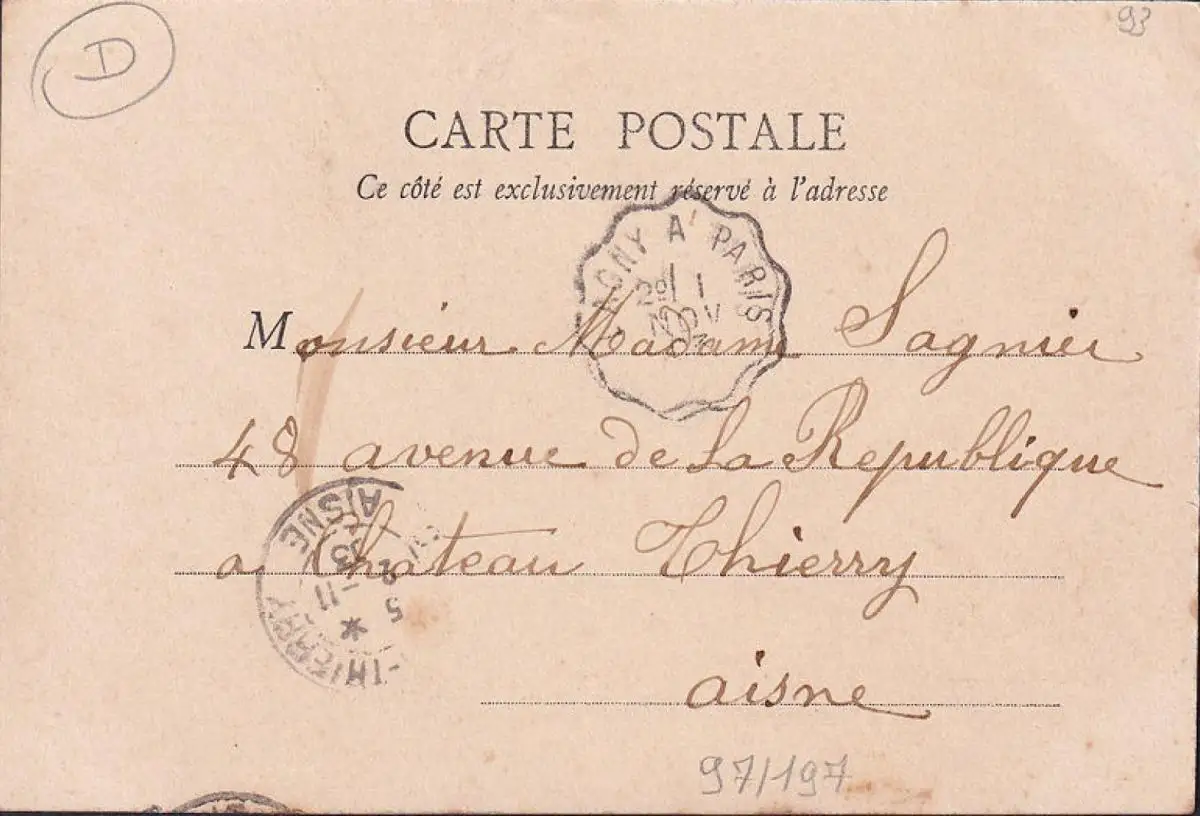 D
93
CARTE POSTALE
Ce côté est exclusivement réservé à l'adresse
A PARIS
NOV
Monsieur Madame Sagnier
48 avenue de La Republique
a Chateau Thierry
aisne
AISNE
THIERRY
97/197